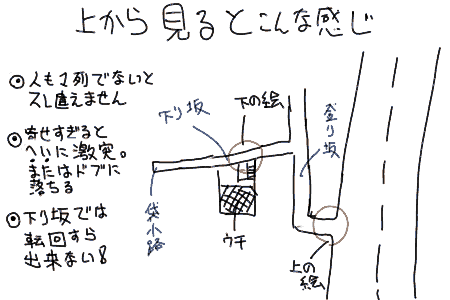 上から見るとこんな感じ
◉人も1列でないと
スレ違えません
◉寄せすぎると
へいに激突。
またはドブに
落ちる
◉下り坂では
転回すら
出来ない!
下り坂
下の絵
登り坂
袋小路
ウチ
上の絵